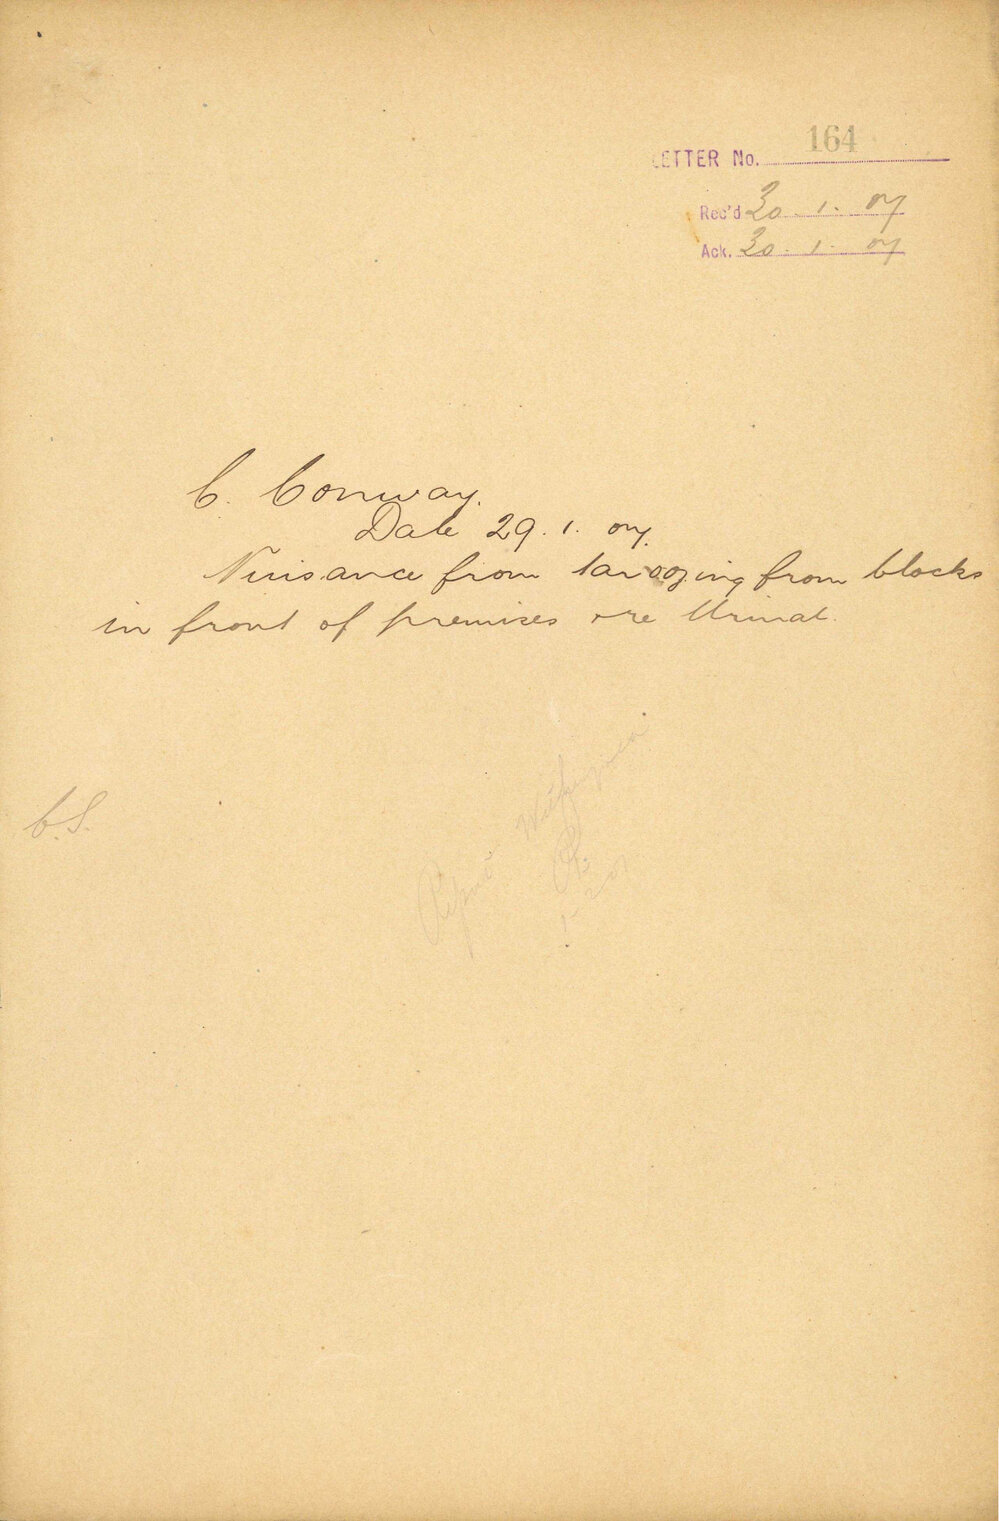 LETTER No. 164
Rec'd 30.1.07
Ack. 30.1.07
C. Conway.
Date 29.1.07.
Nuisance from tar oozing from blocks
in front of premises &re Urinal.
C.S.